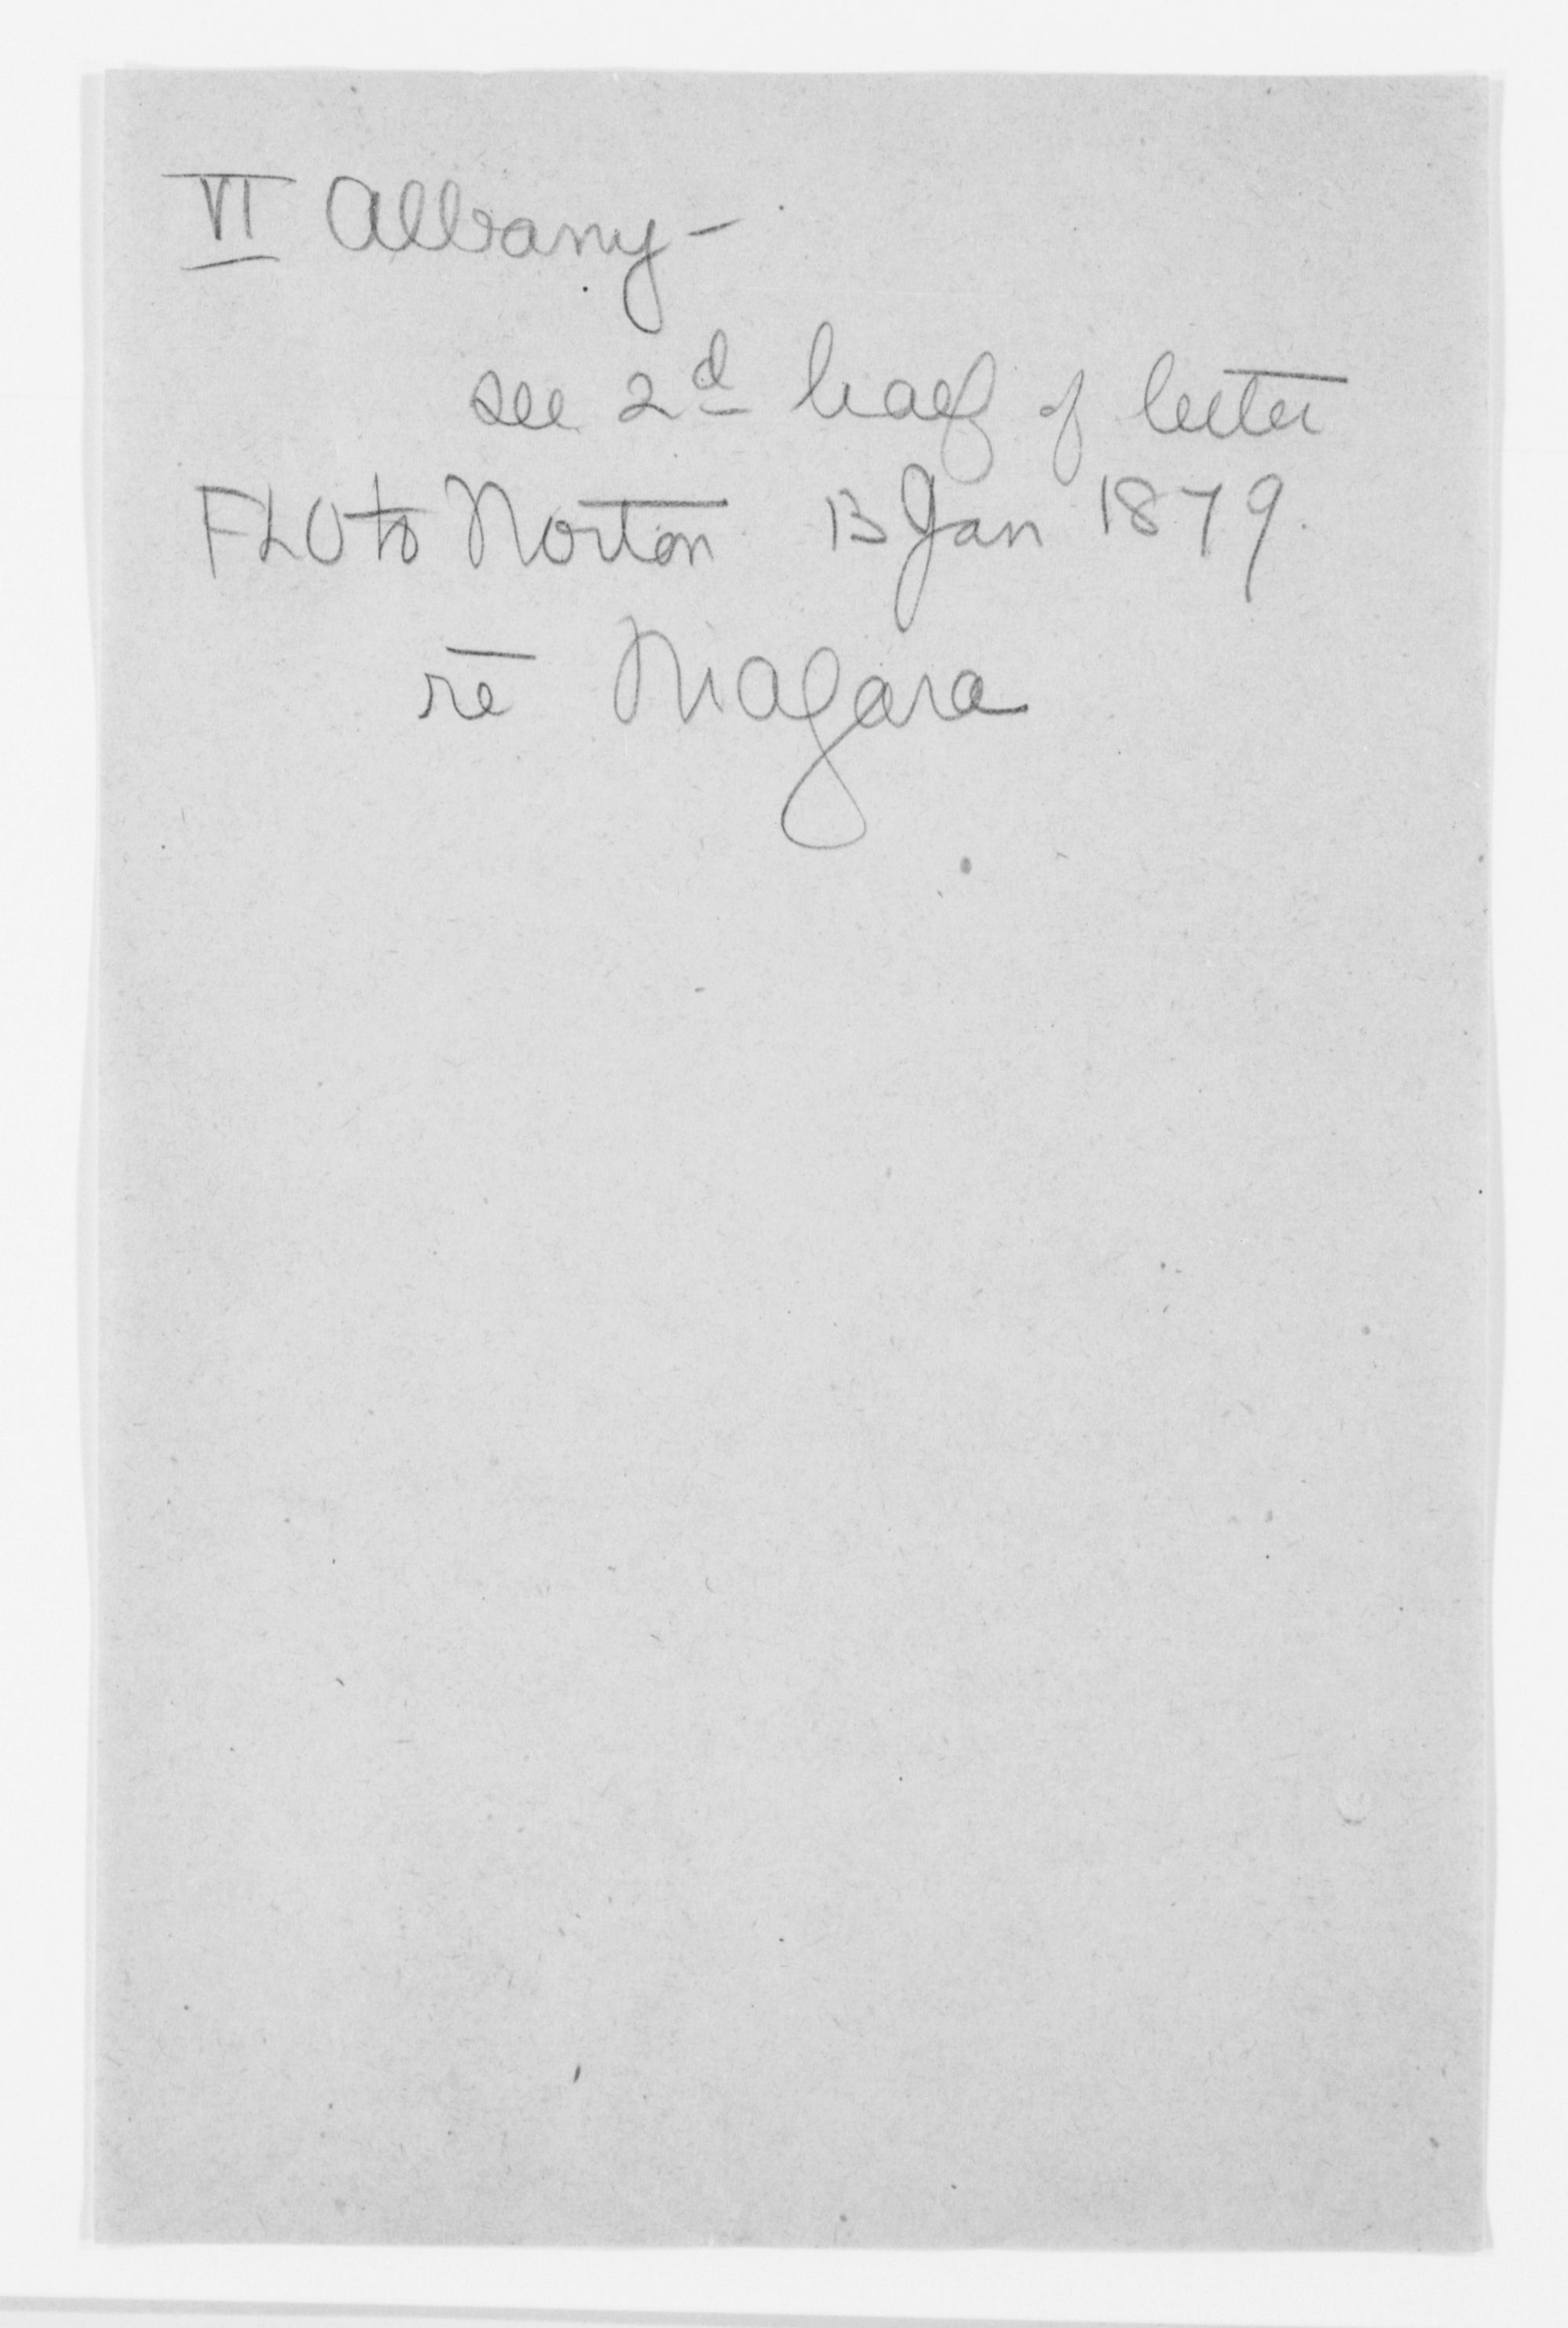 VI Albany -
see 2d half of letter
FLO to Norton 13 Jan 1879.
re Niagara